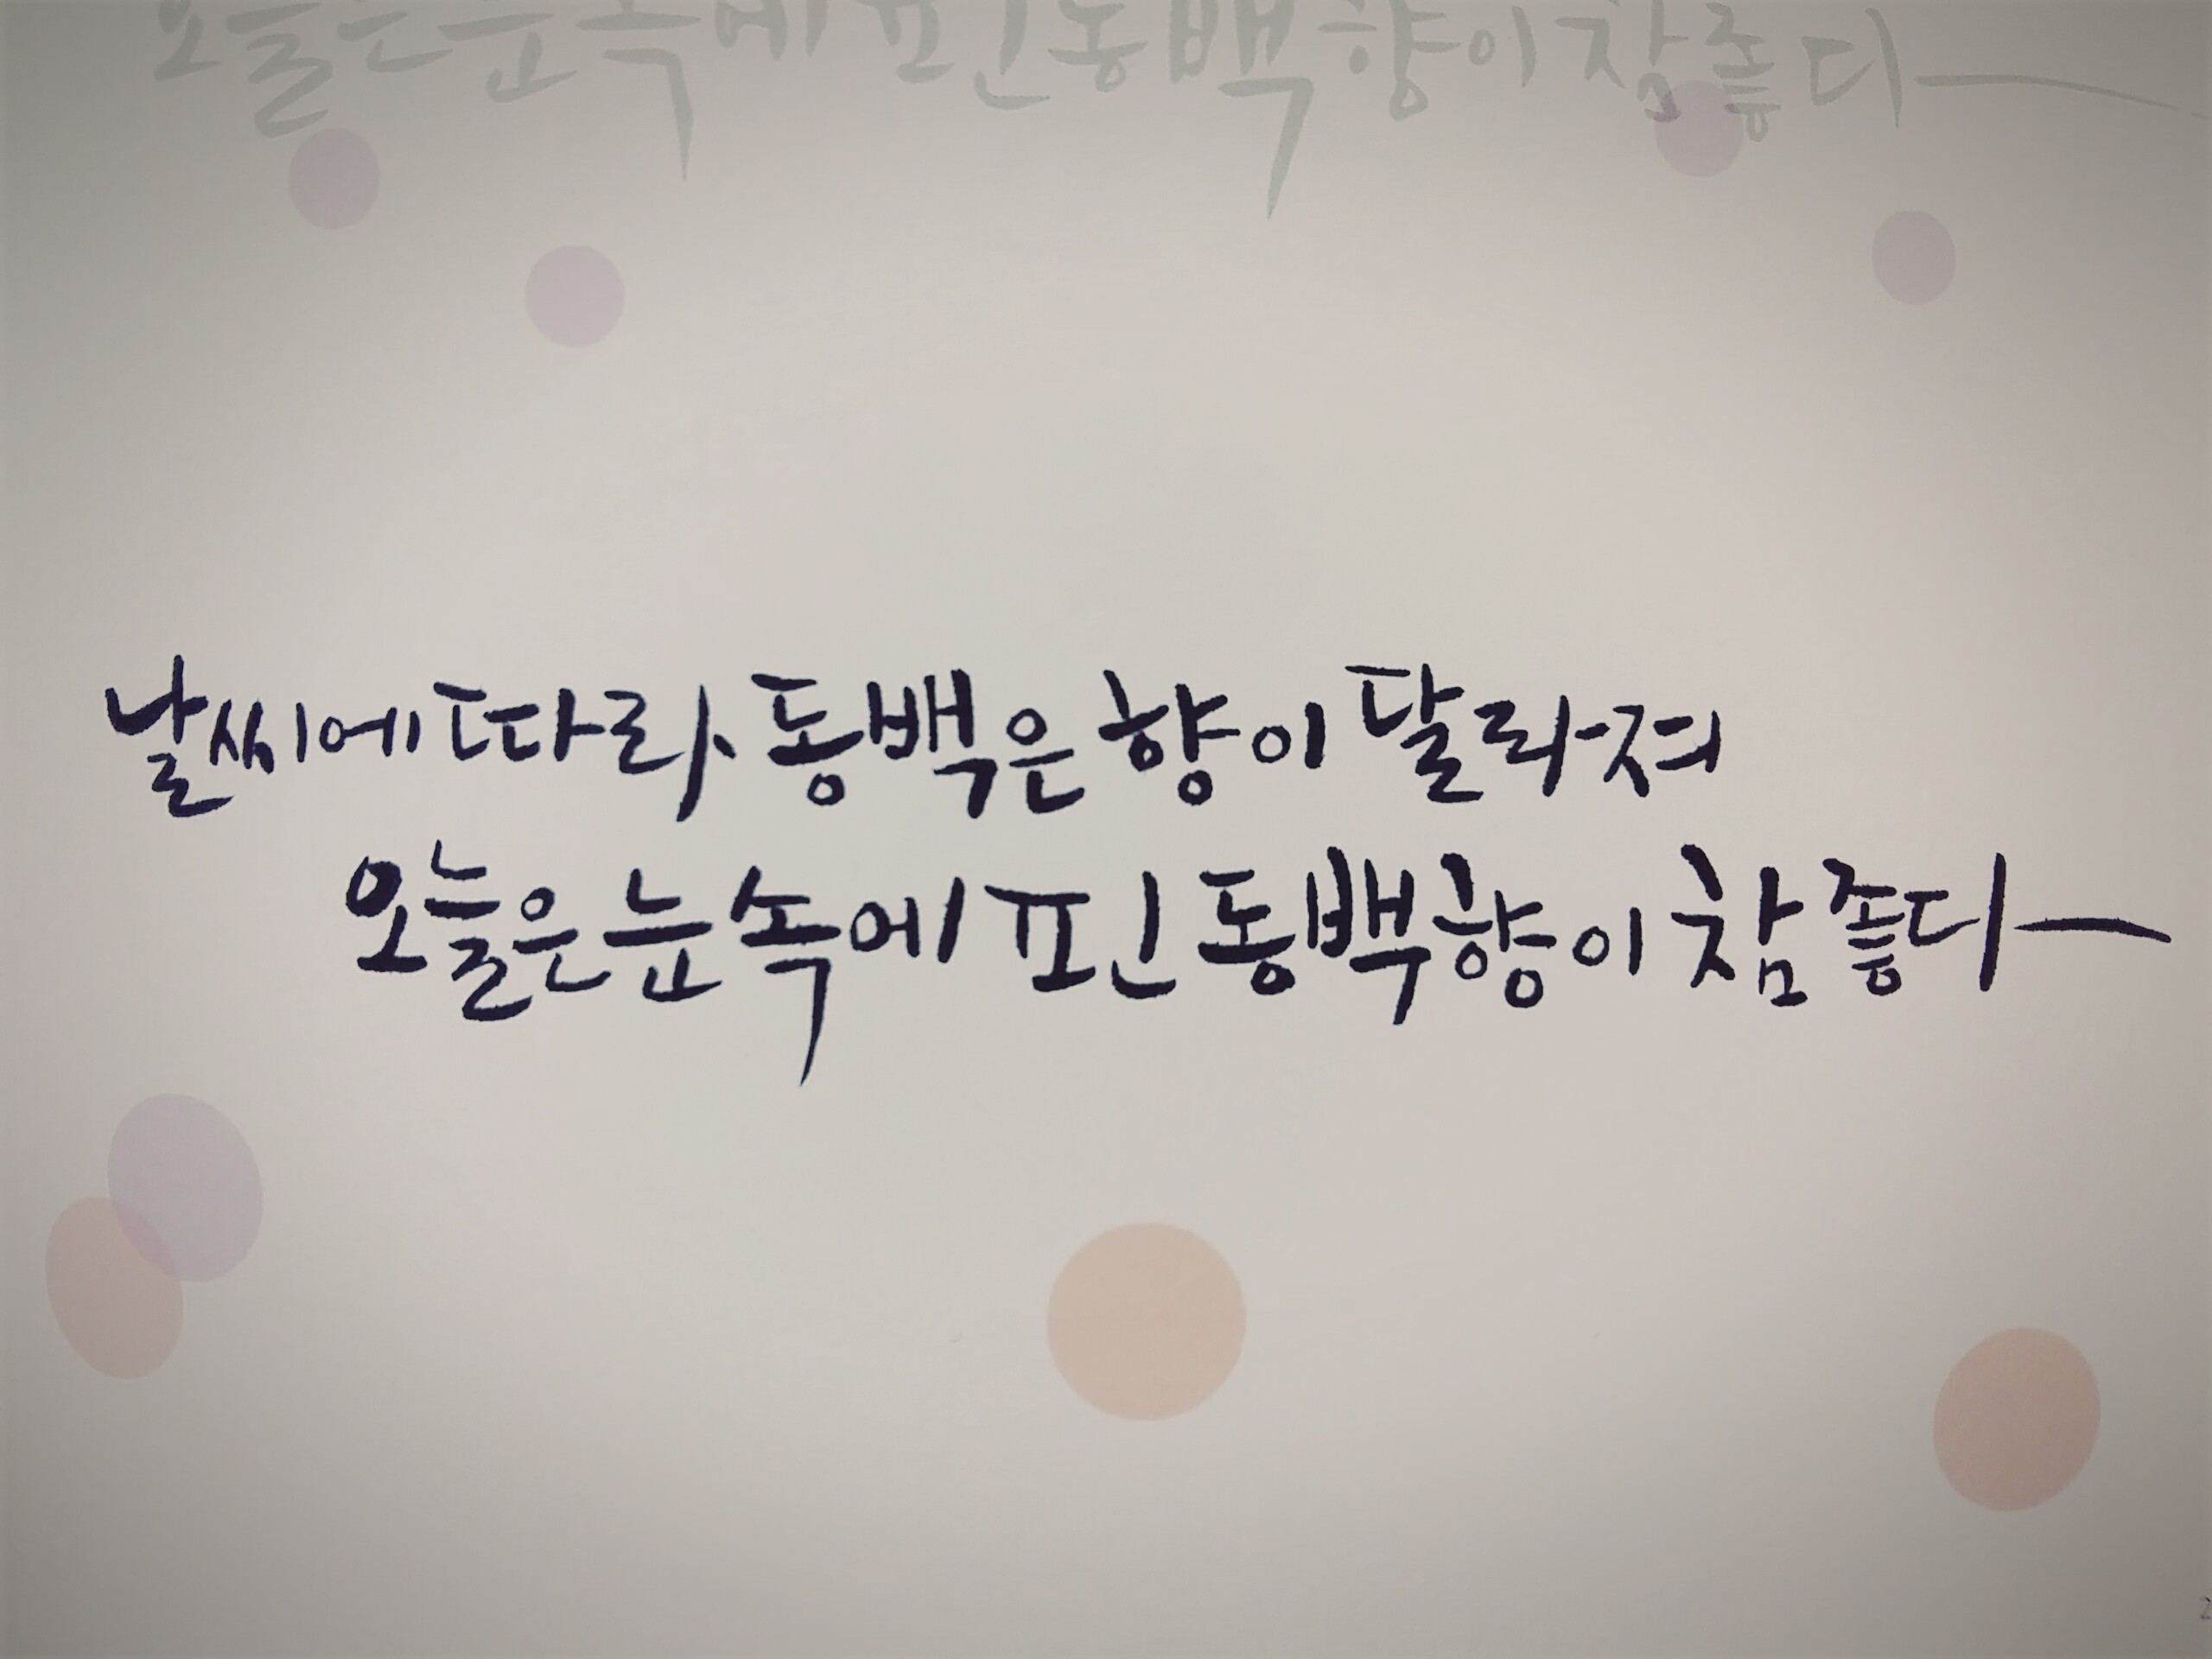 오늘은 눈 속에 핀 동백향이 참 좋디ㅡ
날씨에 따라 동백은 향이 달라져
오늘은 눈 속에 핀 동백향이 참 좋디ㅡ